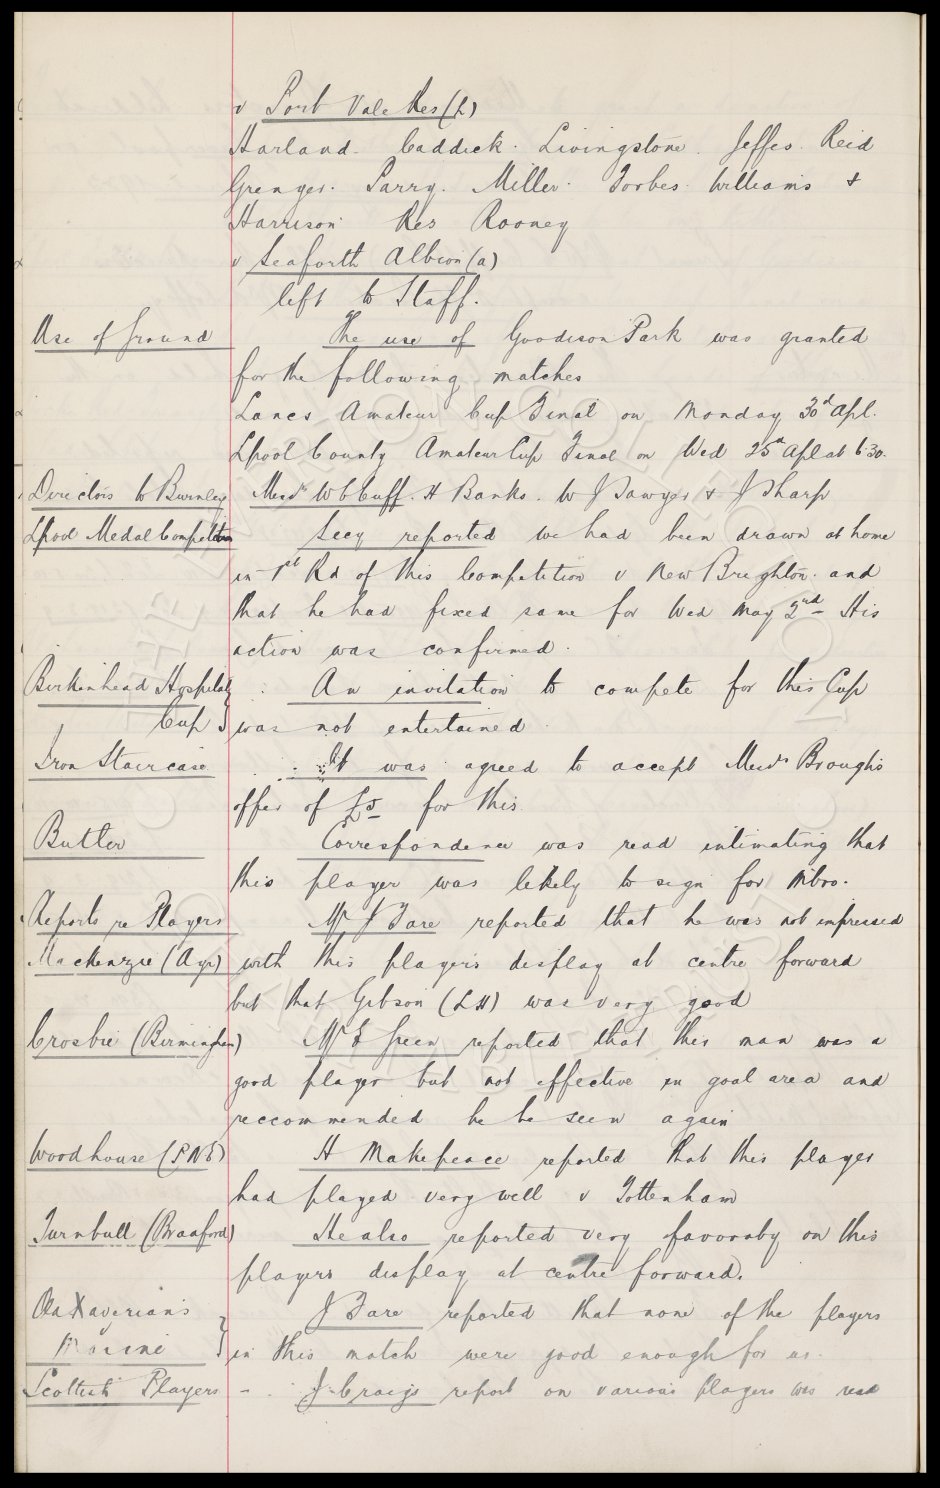 v Port Vale Res (L)
Harland. Caddick. Livingstone. Jeffes. Reid
Grenyer. Parry. Miller. Forbes. Williams &
Harrison Res Rooney
v Seaforth Albion (a)
left to Staff.
Use of Ground The use of Goodison Park was granted
for the following matches
Lancs Amateur Cup Final on Monday 30th Apl.
Lpool County Amateur Cup Final on Wed 25th Apl at 6.30.
Directors to Burnley Messrs W C Cuff. H Banks. W J Sawyer & J Sharp
Lpool Medal Competition Secy reported we had been drawn at home
in 1st Rd of this Competition v New Brighton. and
that he had fixed same for Wed May 2nd His
action was confirmed.
Birkenhead Hospital An invitation to compete for this Cup
Cup } was not entertained.
Iron Staircase It was agreed to accept Messrs Brough's
offer of £5 for this.
Butler Correspondence was read intimating that
this player was likely to sign for Mbro.
Reports re Players Mr J Fare reported that he was not impressed
Mackenzie (Ayr) with this player's display at centre forward
but that Gibson (LH) was very good
Crosbie (Birmingham) Mr E Green reported that this man was a
good player but not effective in goal area and
reccommended he be seen again
Woodhouse (P.N.E) H Makepeace reported that this player
had played very well v Tottenham
Turnbull (Bradford) He also reported very favoraby on this
players display at centre forward.
Old Xaverians J Fare reported that none of the players
Marine } in this match were good enough for us.
Scottish Players - J. Craigs report on various players was read